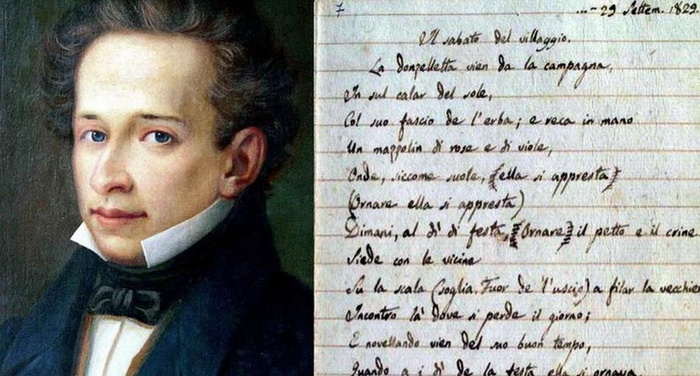 7
...- 29 Settem. 1829.
Il sabato del villaggio.
La donzelletta vien da la campagna,
In sul calar del sole,
Col suo fascio de l'erba; e reca in mano
Un mazzolin di rose e di viole,
Onde, siccome suole, (ella si appresta)
(Ornare ella si appresta)
Dimani, al dì di festa, (Ornare) il petto e il crine.
Siede con le vicine
Su la scala (soglia. Fuor de l'uscio) a filar la vecchier
Incontro là dove si perde il giorno;
E novellando vien del suo buon tempo,
Quando a i dì de la festa ella si ornava